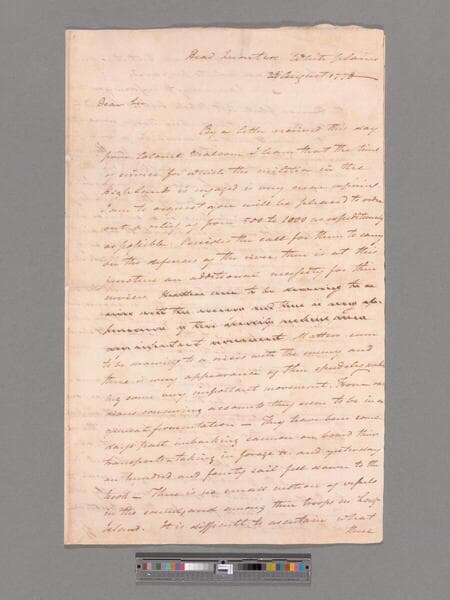 Head Quarters White plains
28 August 1778
Dear Sir
By a letter received this day
from Colonel Malcom I learn that the time
of service for which the militia in the
highlands is engaged is very near expiring
I am to request you will be pleased to order
out a relief of from 500 to 1000 as expeditiously
as possible. Besides the call for them to carry
on the defences of the river there is at this
juncture an additional necessity for their
services Matters seem to be drawing to a
crisis with the enemy and there is every ap-
pearance of their speedily making some
very important movement Matters seem
to be drawing to a crisis with the enemy and
there is every appearance of their speedily mak
ing some very important movement. From va
rious concurring accounts they seem to be in a
great fermentation — They have been some
days past embarking cannon on board their
transports — taking in forage &c and yesterday
an hundred and forty sail fell down to the
hook — There is no small motion of vessels
in the sound, and among their troops on Long
Island. It is difficult to ascertain what
these